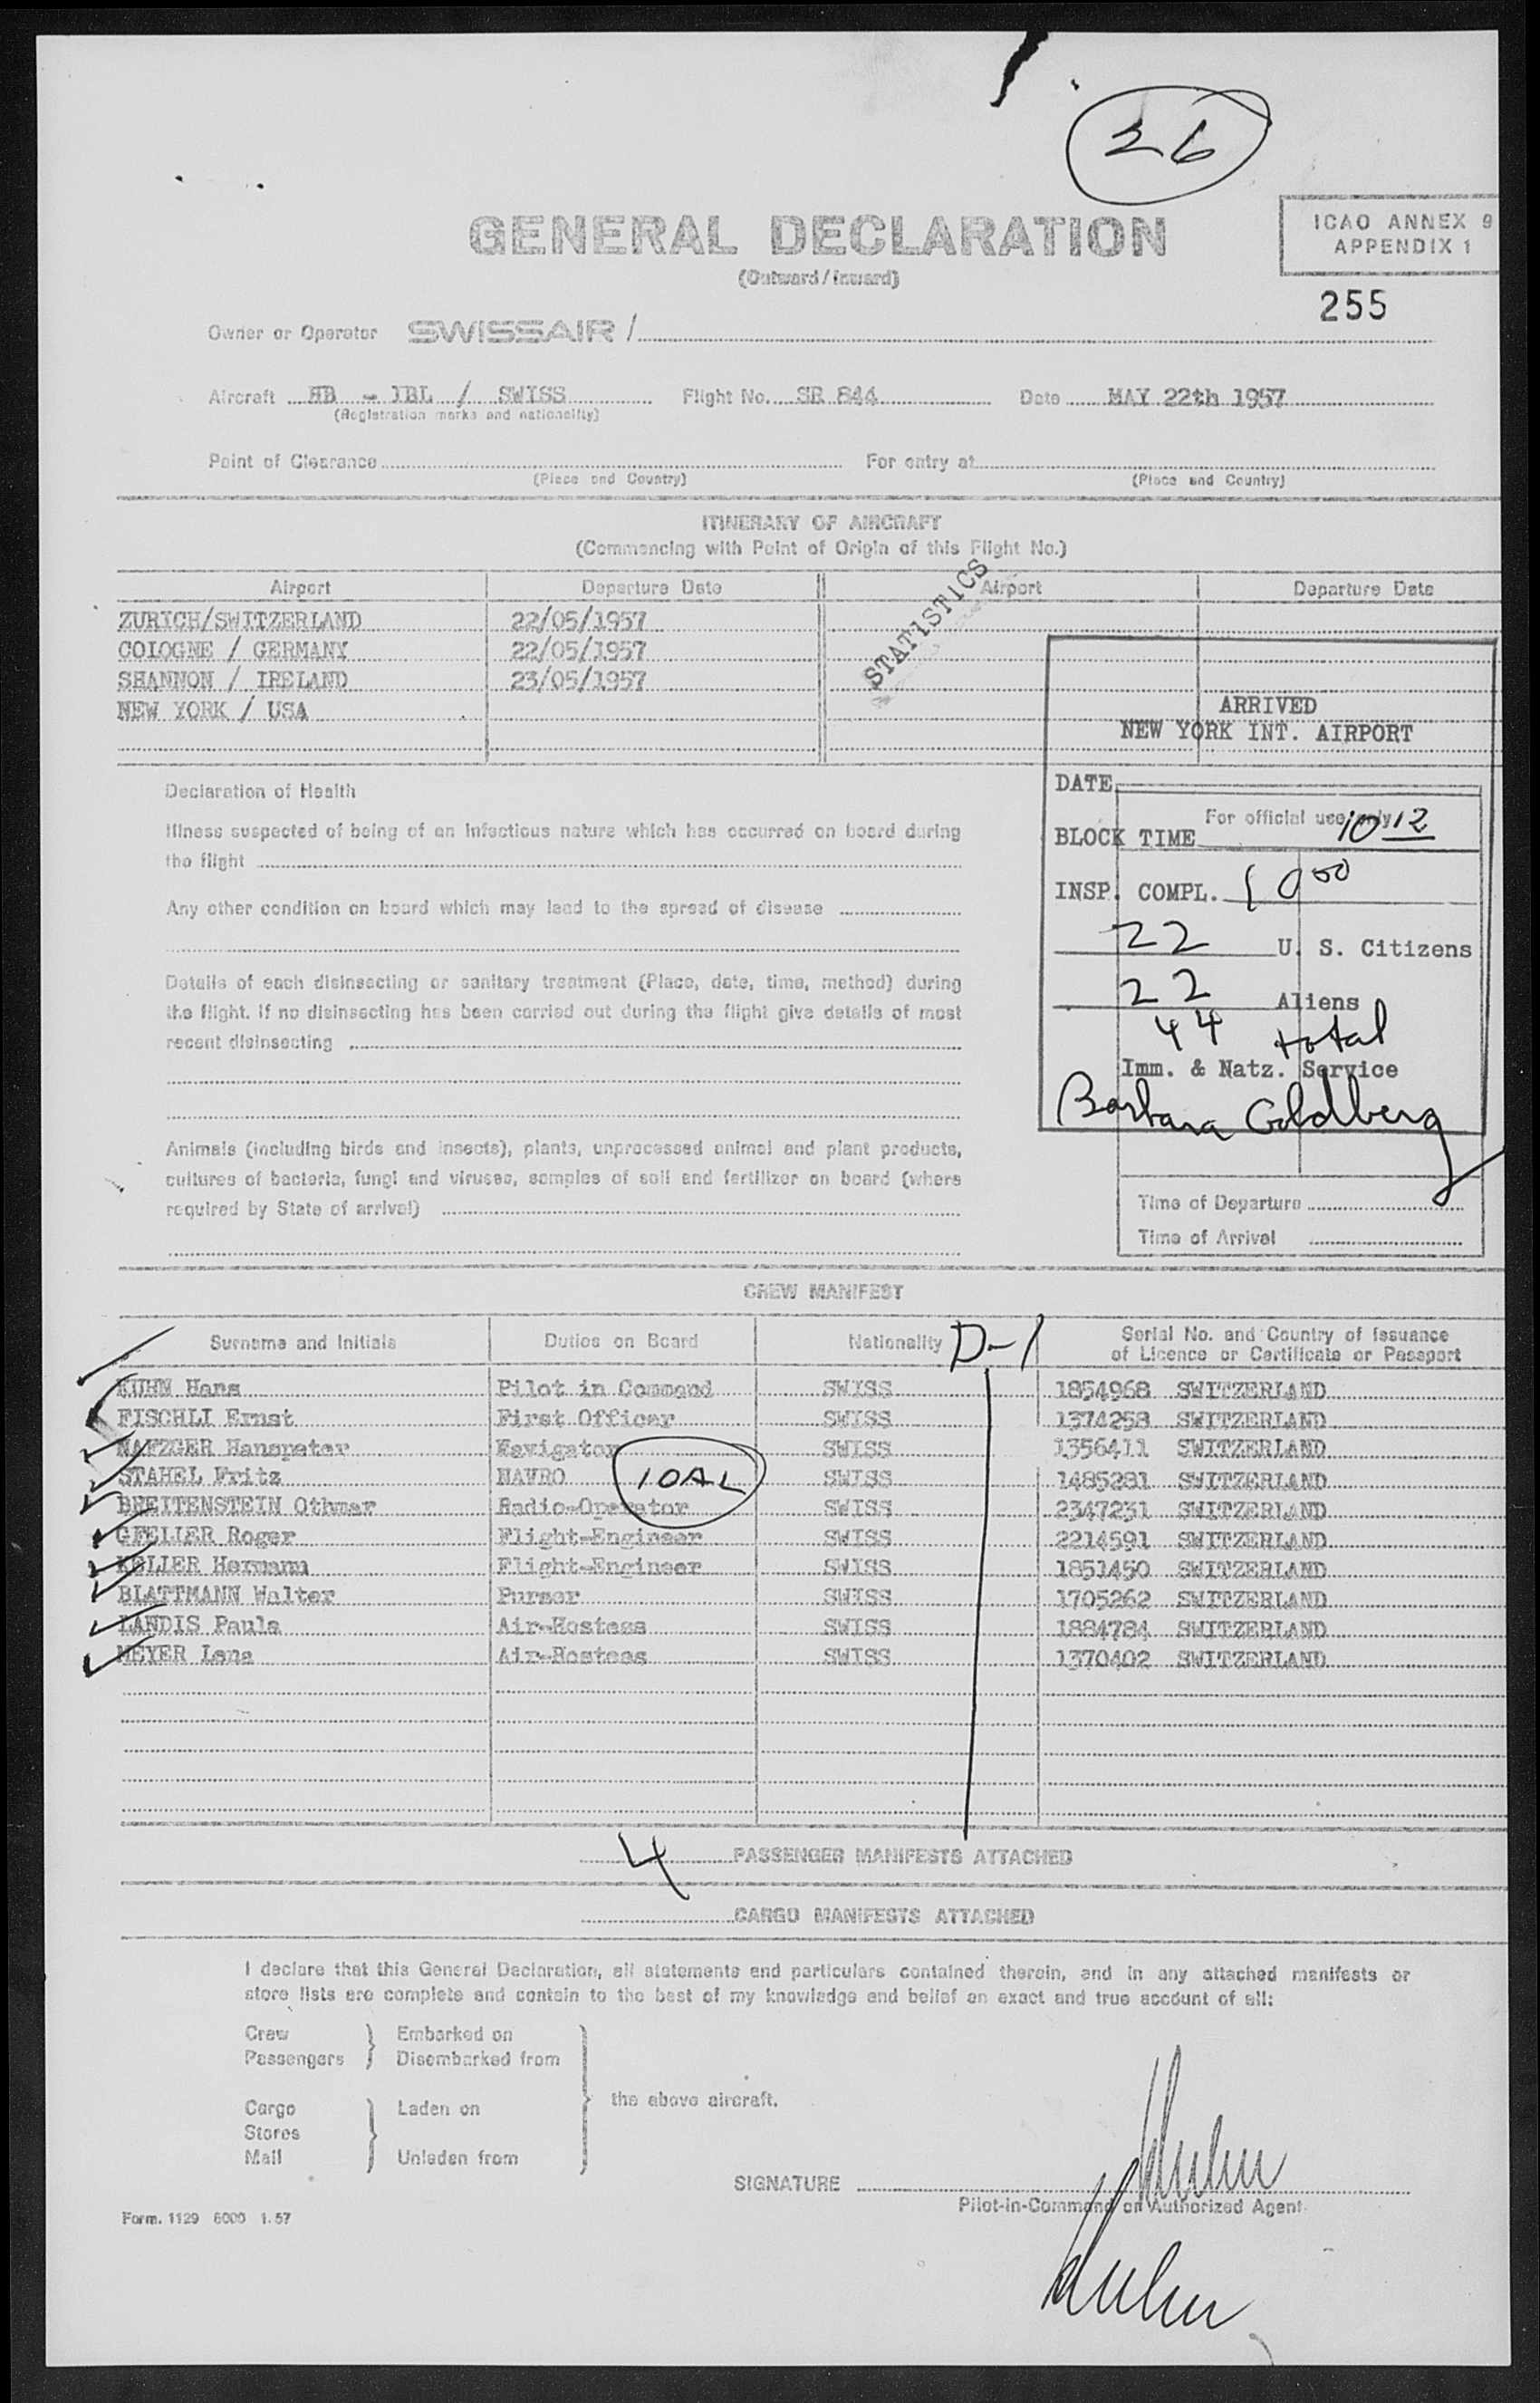 26
GENERAL DECLARATION
(Outward/Inward)
ICAO ANNEX 9
APPENDIX 1
255
Owner or Operator SWISSAIR /
Aircraft HB - IBL / SWISS Flight No. SR 844 Date MAY 22th 1957
(Registration marks and nationality)
Point of Clearance For entry at
(Place and Country) (Place and Country)
ITINERARY OF AIRCRAFT
(Commencing with Point of Origin of this Flight No.)
Airport Departure Date Airport Departure Date
STATISTICS
ZURICH/SWITZERLAND 22/05/1957
COLOGNE / GERMANY 22/05/1957
SHANNON / IRELAND 23/05/1957
NEW YORK / USA
ARRIVED
NEW YORK INT. AIRPORT
DATE
For official use only
BLOCK TIME 10 12
INSP. COMPL. 10 50
22 U. S. Citizens
22 Aliens
44 total
Imm. & Natz. Service
Barbara Goldberg
Time of Departure
Time of Arrival
Declaration of Health
Illness suspected of being of an infectious nature which has occurred on board during
the flight
Any other condition on board which may lead to the spread of disease
Details of each disinsecting or sanitary treatment (Place, date, time, method) during
the flight. If no disinsecting has been carried out during the flight give details of most
recent disinsecting
Animals (including birds and insects), plants, unprocessed animal and plant products,
cultures of bacteria, fungi and viruses, samples of soil and fertilizer on board (where
required by State of arrival)
CREW MANIFEST
Surname and Initials Duties on Board Nationality D-1 Serial No. and Country of Issuance
of Licence or Certificate or Passport
KUHN Hans Pilot in Command SWISS 1854968 SWITZERLAND
FISCHLI Ernst First Officer SWISS 1374258 SWITZERLAND
NAFZGER Hanspeter Navigator SWISS 1356411 SWITZERLAND
STAHEL Fritz NAVRO 10AL SWISS 1485281 SWITZERLAND
BREITENSTEIN Othmar Radio-Operator SWISS 2347231 SWITZERLAND
GFELLER Roger Flight-Engineer SWISS 2214591 SWITZERLAND
KELLER Hermann Flight-Engineer SWISS 1851450 SWITZERLAND
BLATTMANN Walter Purser SWISS 1705262 SWITZERLAND
LANDIS Paula Air-Hostess SWISS 1884784 SWITZERLAND
MEYER Lena Air-Hostess SWISS 1370402 SWITZERLAND
4 PASSENGER MANIFESTS ATTACHED
CARGO MANIFESTS ATTACHED
I declare that this General Declaration, all statements and particulars contained therein, and in any attached manifests or
store lists are complete and contain to the best of my knowledge and belief an exact and true account of all:
Crew Embarked on
Passengers Disembarked from
the above aircraft.
Cargo Laden on
Stores
Mail Unladen from
SIGNATURE
Pilot-in-Command or Authorized Agent
Form. 1129 6000 1.57